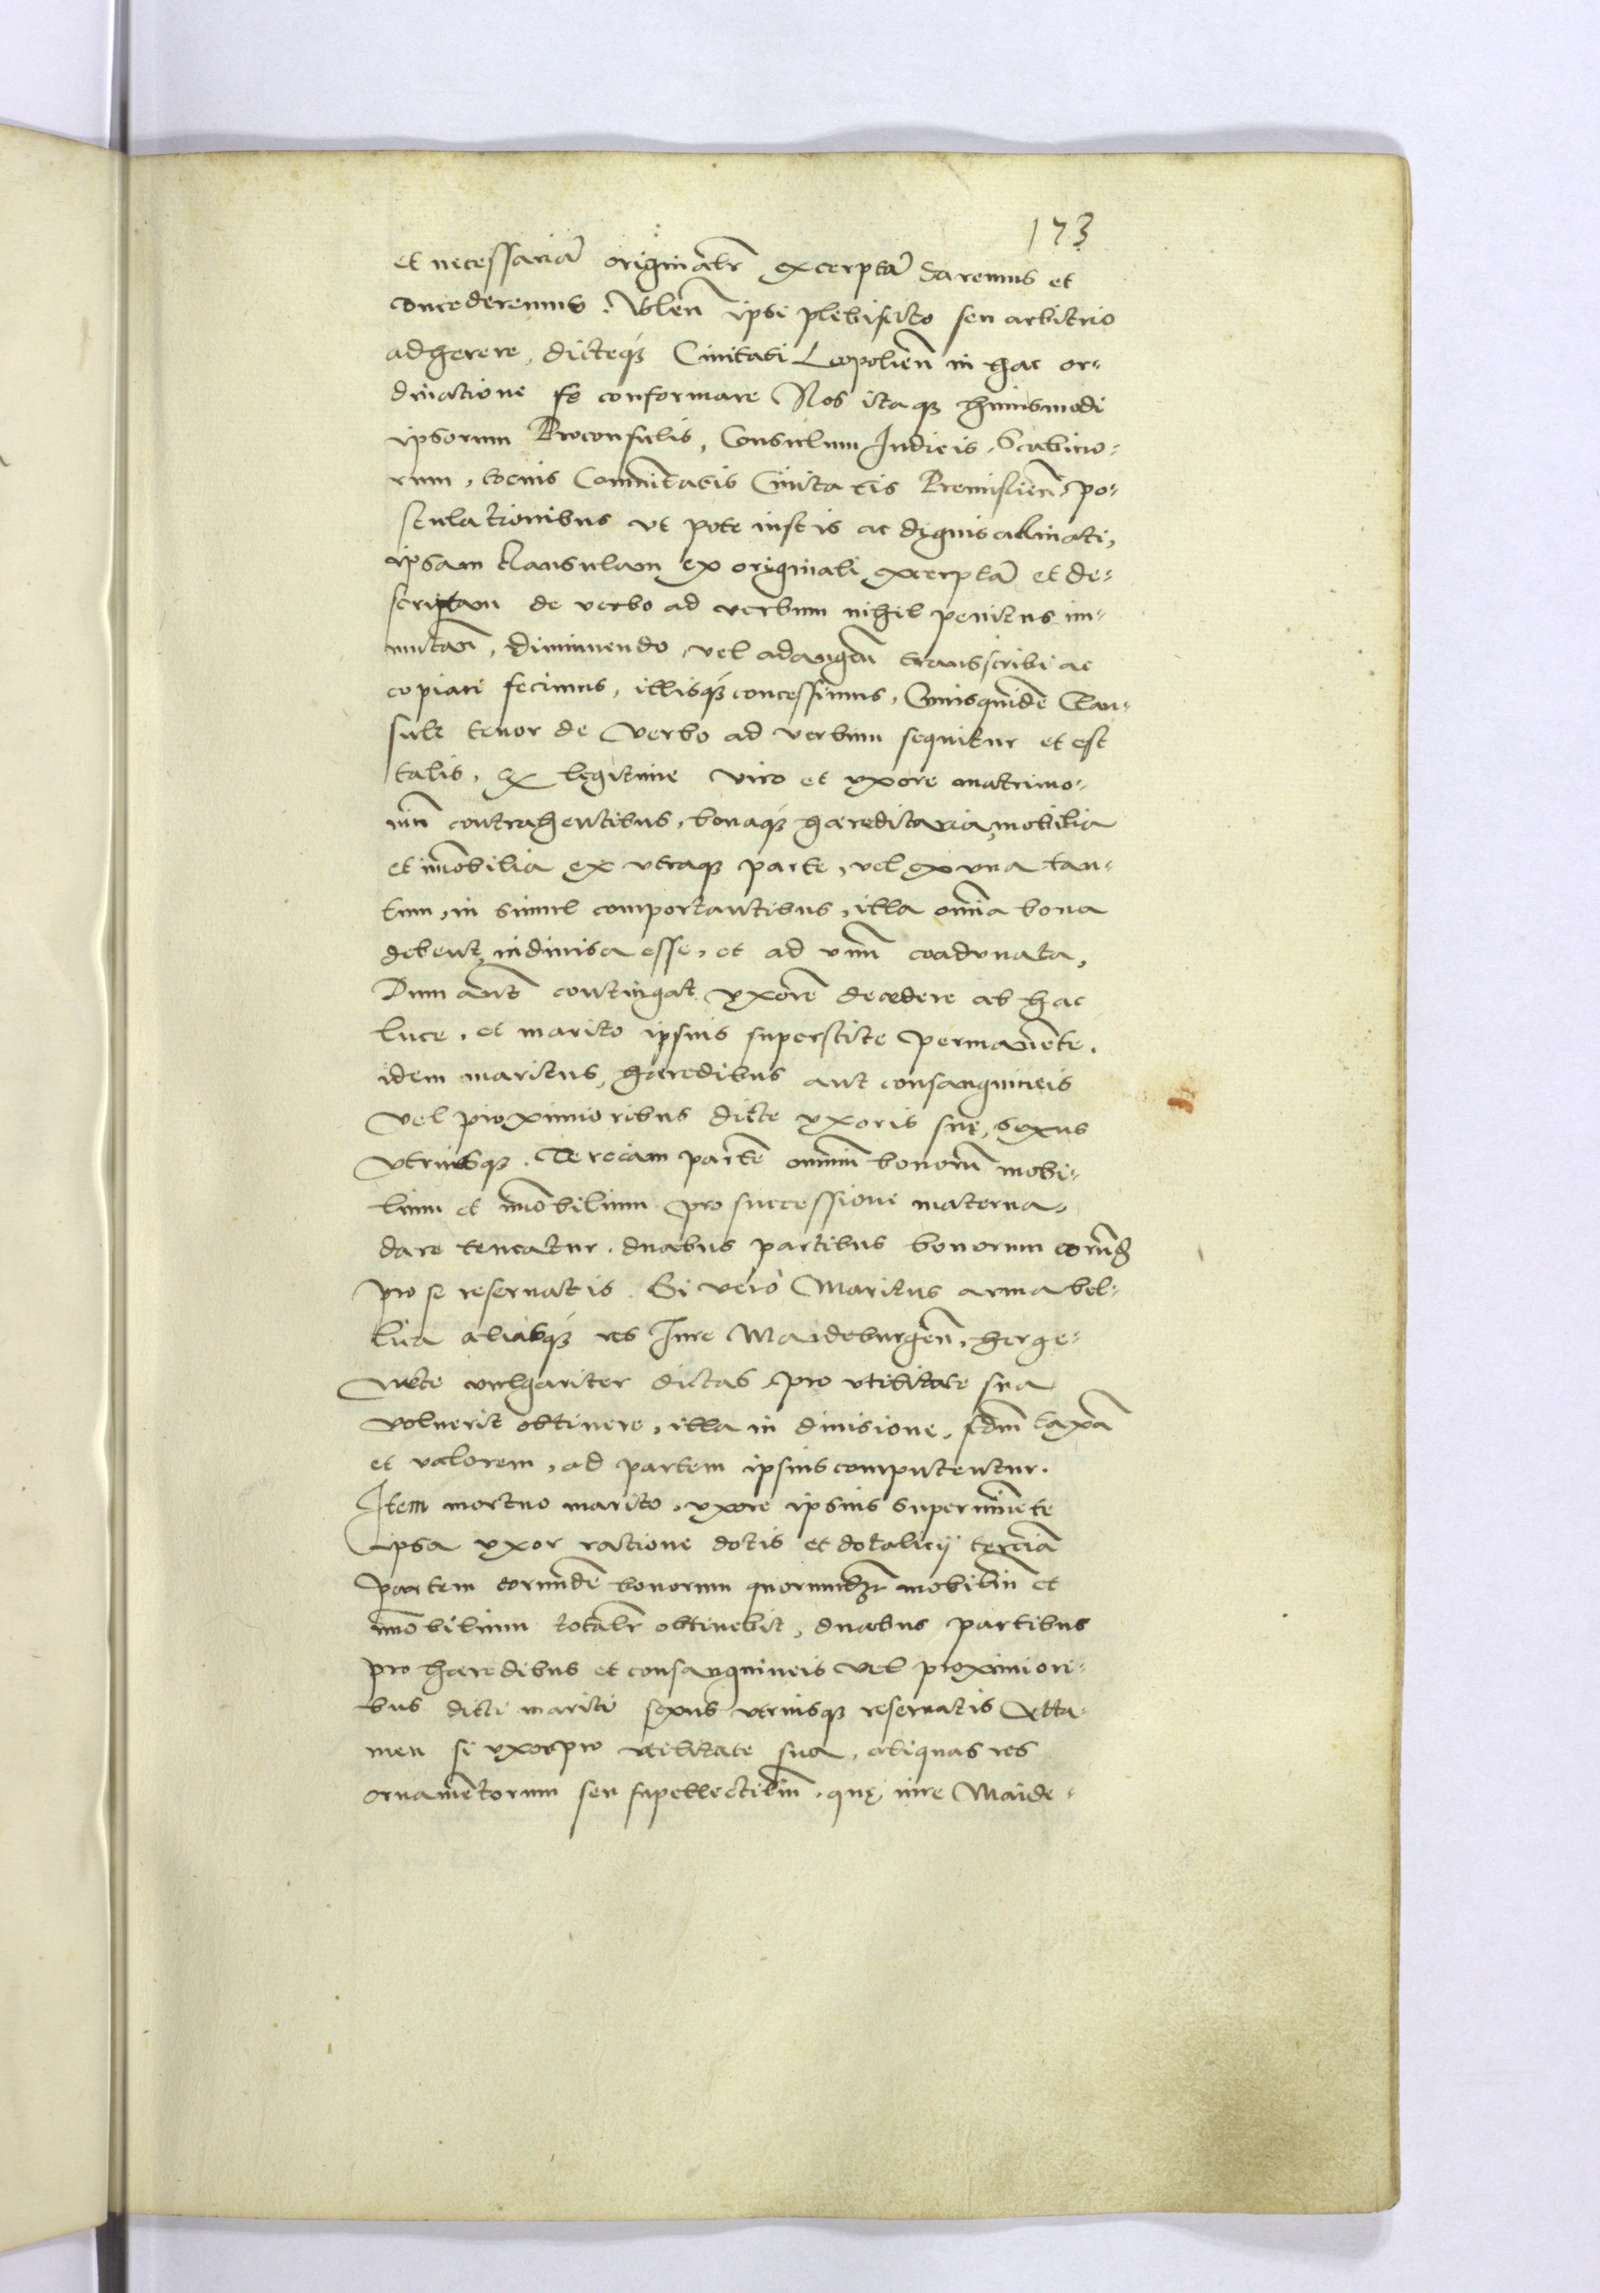 173
et necessariã originalr̃ excerptã daremus et
concederemus. Volen̄ ipsi plebiscito seu arbitrio
adherere, dicteq́ꝫ Ciuitati Leopolien̄ in hac or-
dinatione se conformare Nos itaqꝫ huiusmodi
ipsorum Proconsulis, Consulum Iudicis, Scabino-
rum, tocius Com̄unitatis Ciuitatis Premislien̄, po-
stulationibus vt pote iustis ac dignis aclinati,
ipsam klausulam ex originali excerptã et de-
scriptam de verbo ad verbum nihil penitus im-
mutan̄, diminuendo, vel adaugen̄ transscribi ac
copiari fecimus, illisq́ꝫ concessimus, Cuiusquidẽ Clau-
sule tenor de verbo ad verbum sequitur et est
talis, Ex legitime viro et vxore matrimo-
niũ contrahentibus, bonaq́ꝫ haereditaria, mobilia
et im̄obilia ex vtraqꝫ parte, vel ex vna tan-
tum, in simul comportantibus, illa om̄ia bona
debent, indiuisa esse, et ad vnũ coadunata,
Dum aut̃ contingat vxorẽ decedere ab hac
luce, et marito ipsius superstite permanẽte,
idem maritus, haeredibus aut consanguineis
vel proximioribus dicte vxoris suę, sexus
vtriusqꝫ. Terciam partẽ omniũ bonorũ mobi-
lium et im̄obilium pro successione materna,
dare teneatur, duabus partibus bonorum eorũdẽ
pro se reseruatis. Si verò Maritus arma bel-
lica aliasq́ꝫ res Iure Maideburgen̄, herge-
wete vulgariter dictas pro vtilitate sua
voluerit obtinere, illa in diuisione, scdm̄ taxã
et valorem, ad partem ipsius computentur.
Item mortuo marito, vxore ipsius superuiuẽte
ipsa vxor ratione dotis et dotalicij terciã
partem eorundẽ bonorum quorumcũqꝫ mobiliũ et
im̄obilium totalr̃ obtinebit, duabus partibus
pro haeredibus et consanguineis vel proximiori-
bus dicti mariti sexus vtriusqꝫ reseruatis Atta-
men si vxor pro vtilitate sua, aliquas res
ornamẽtorum seu supellectiliũ, quę iure Maide-